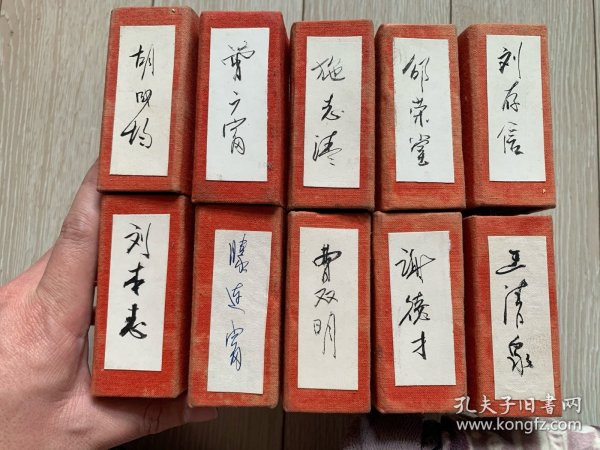 胡四均
曾广富
施志清
邰荣堂
刘存信
刘本志
滕连富
曹双明
谢德才
王清泉
孔夫子旧书网
www.kongfz.com